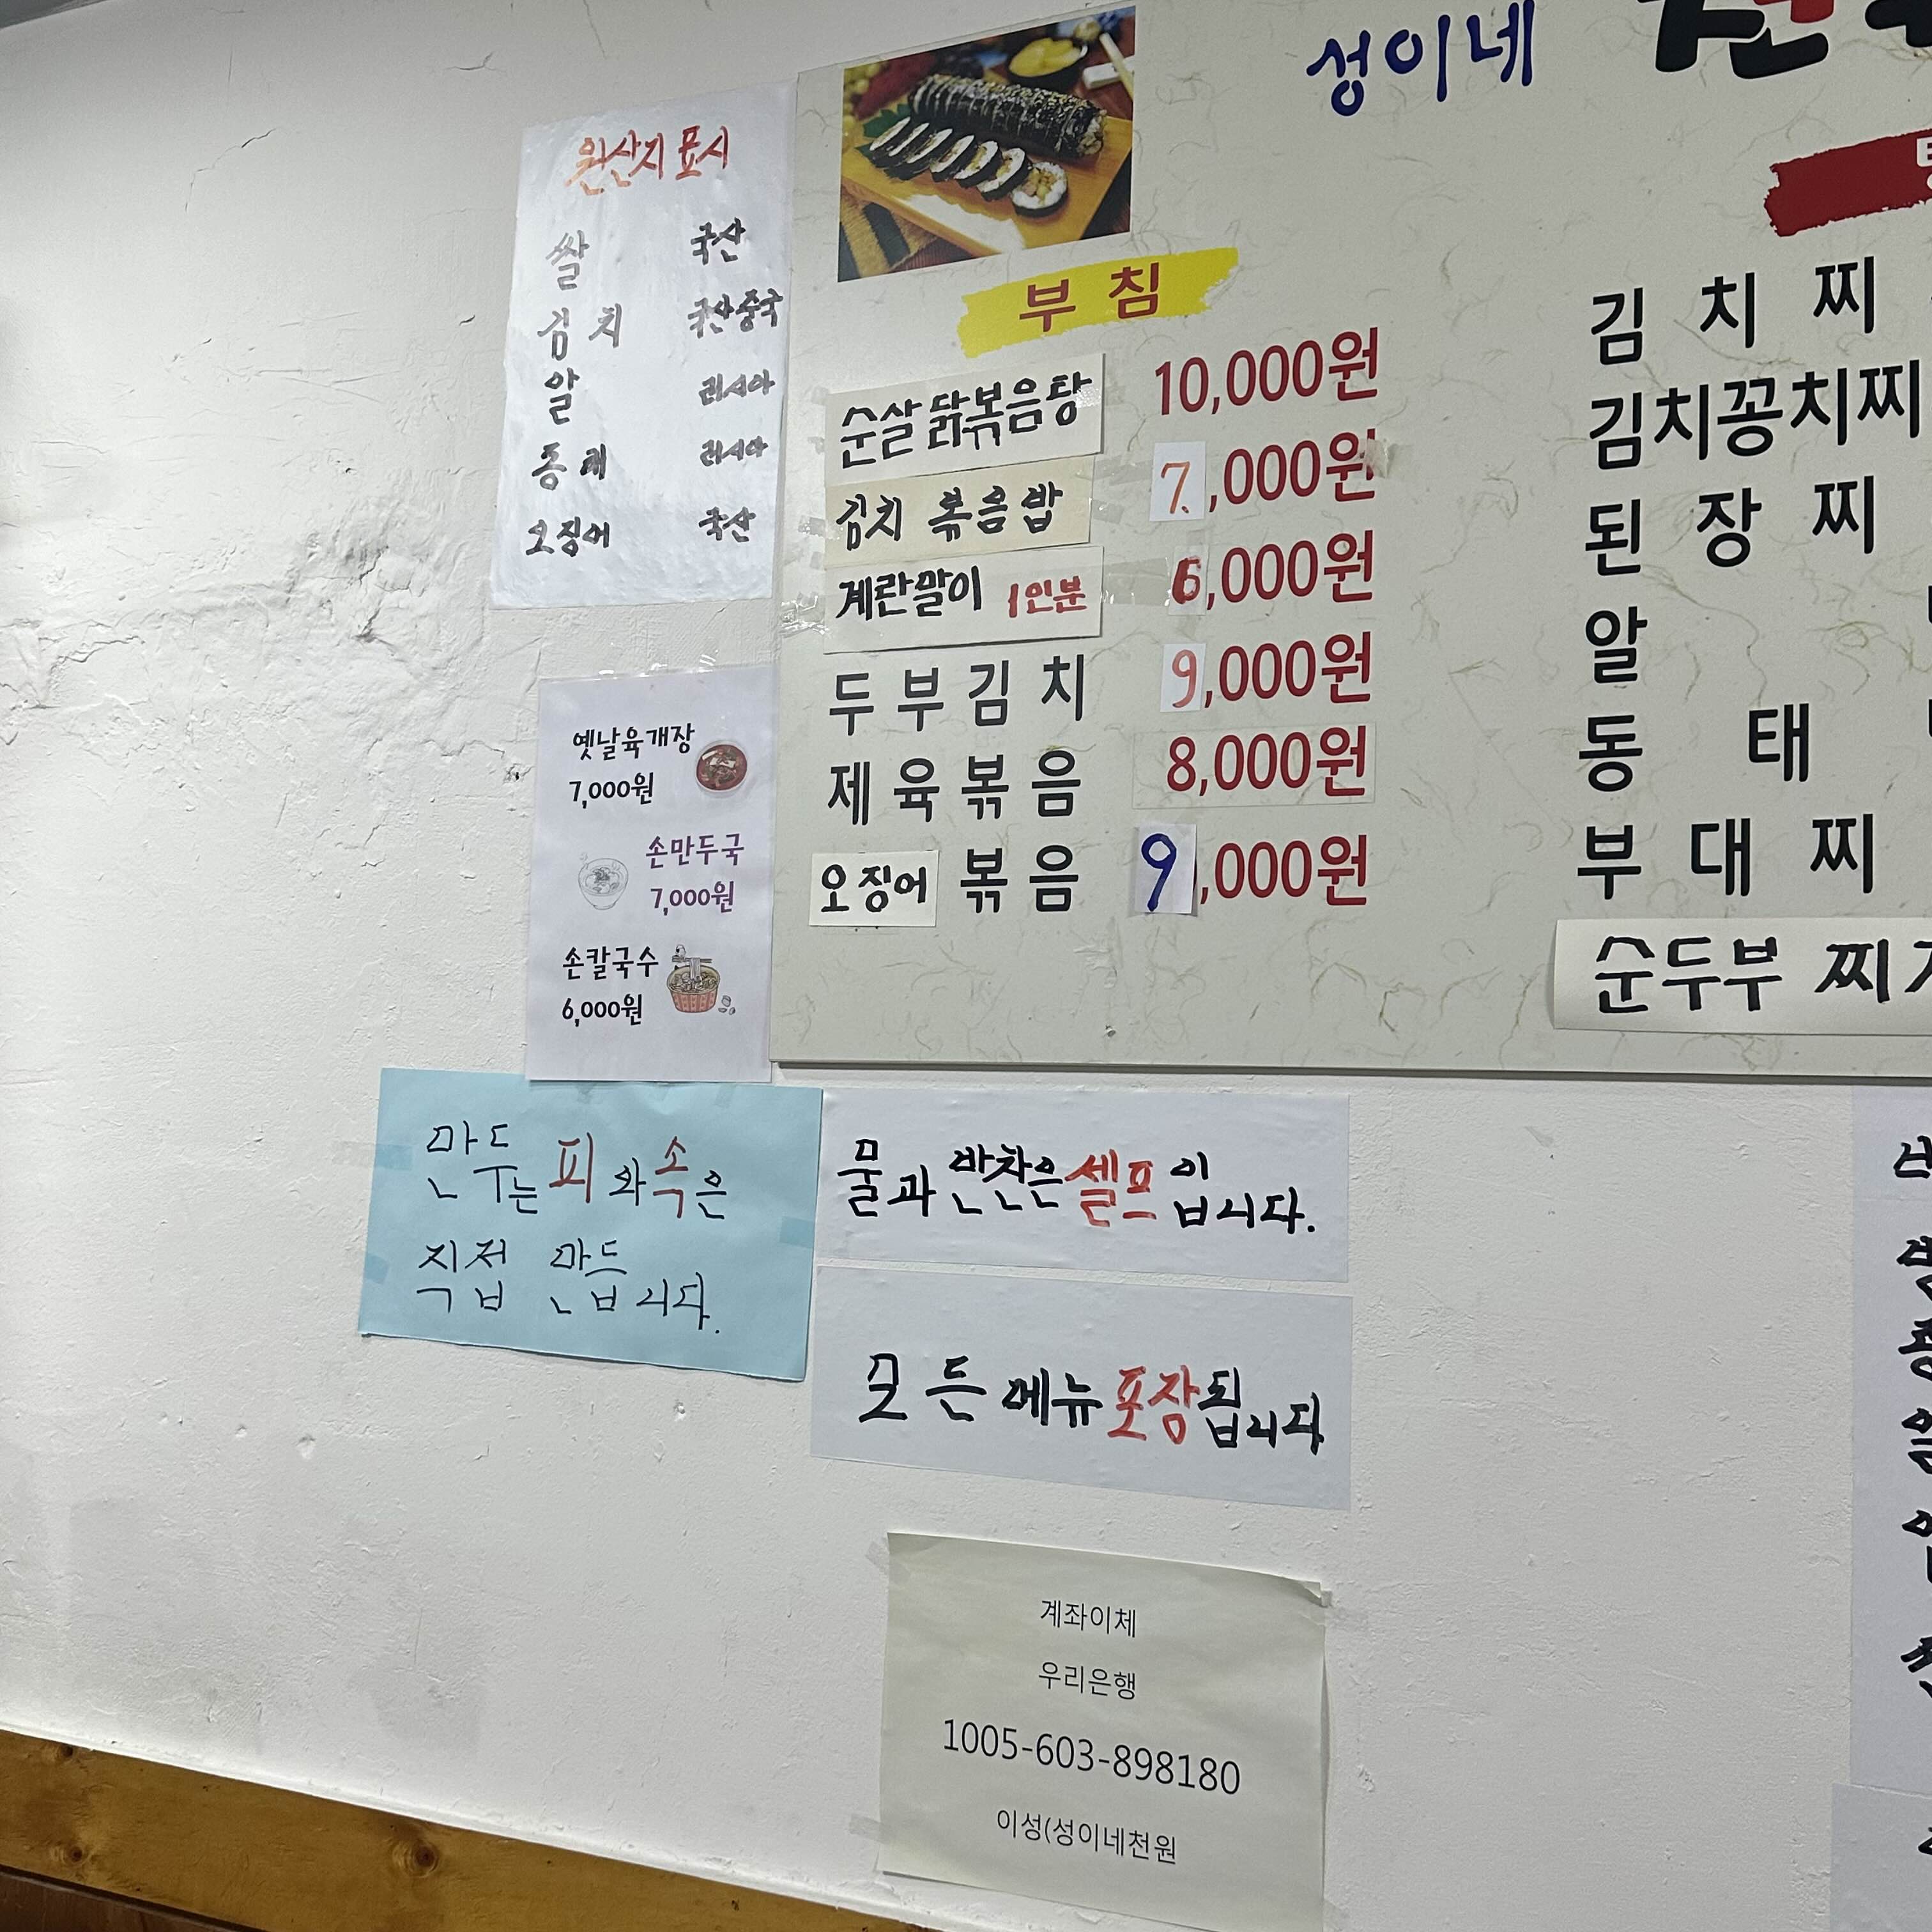 원산지 표시
쌀 국산
김치 국산 중국
알 러시아
동태 러시아
오징어 국산
옛날육개장
7,000원
손만두국
7,000원
손칼국수
6,000원
성이네
부침
순살 닭볶음탕 10,000원
김치 볶음밥 7,000원
계란말이 1인분 6,000원
두부김치 9,000원
제육볶음 8,000원
오징어 볶음 9,000원
김치찌
김치꽁치찌
된장찌
알
동태
부대찌
순두부
만두는 피와 속은
직접 만듭니다.
물과 반찬은 셀프입니다.
모든 메뉴 포장됩니다
계좌이체
우리은행
1005-603-898180
이성(성이네천원